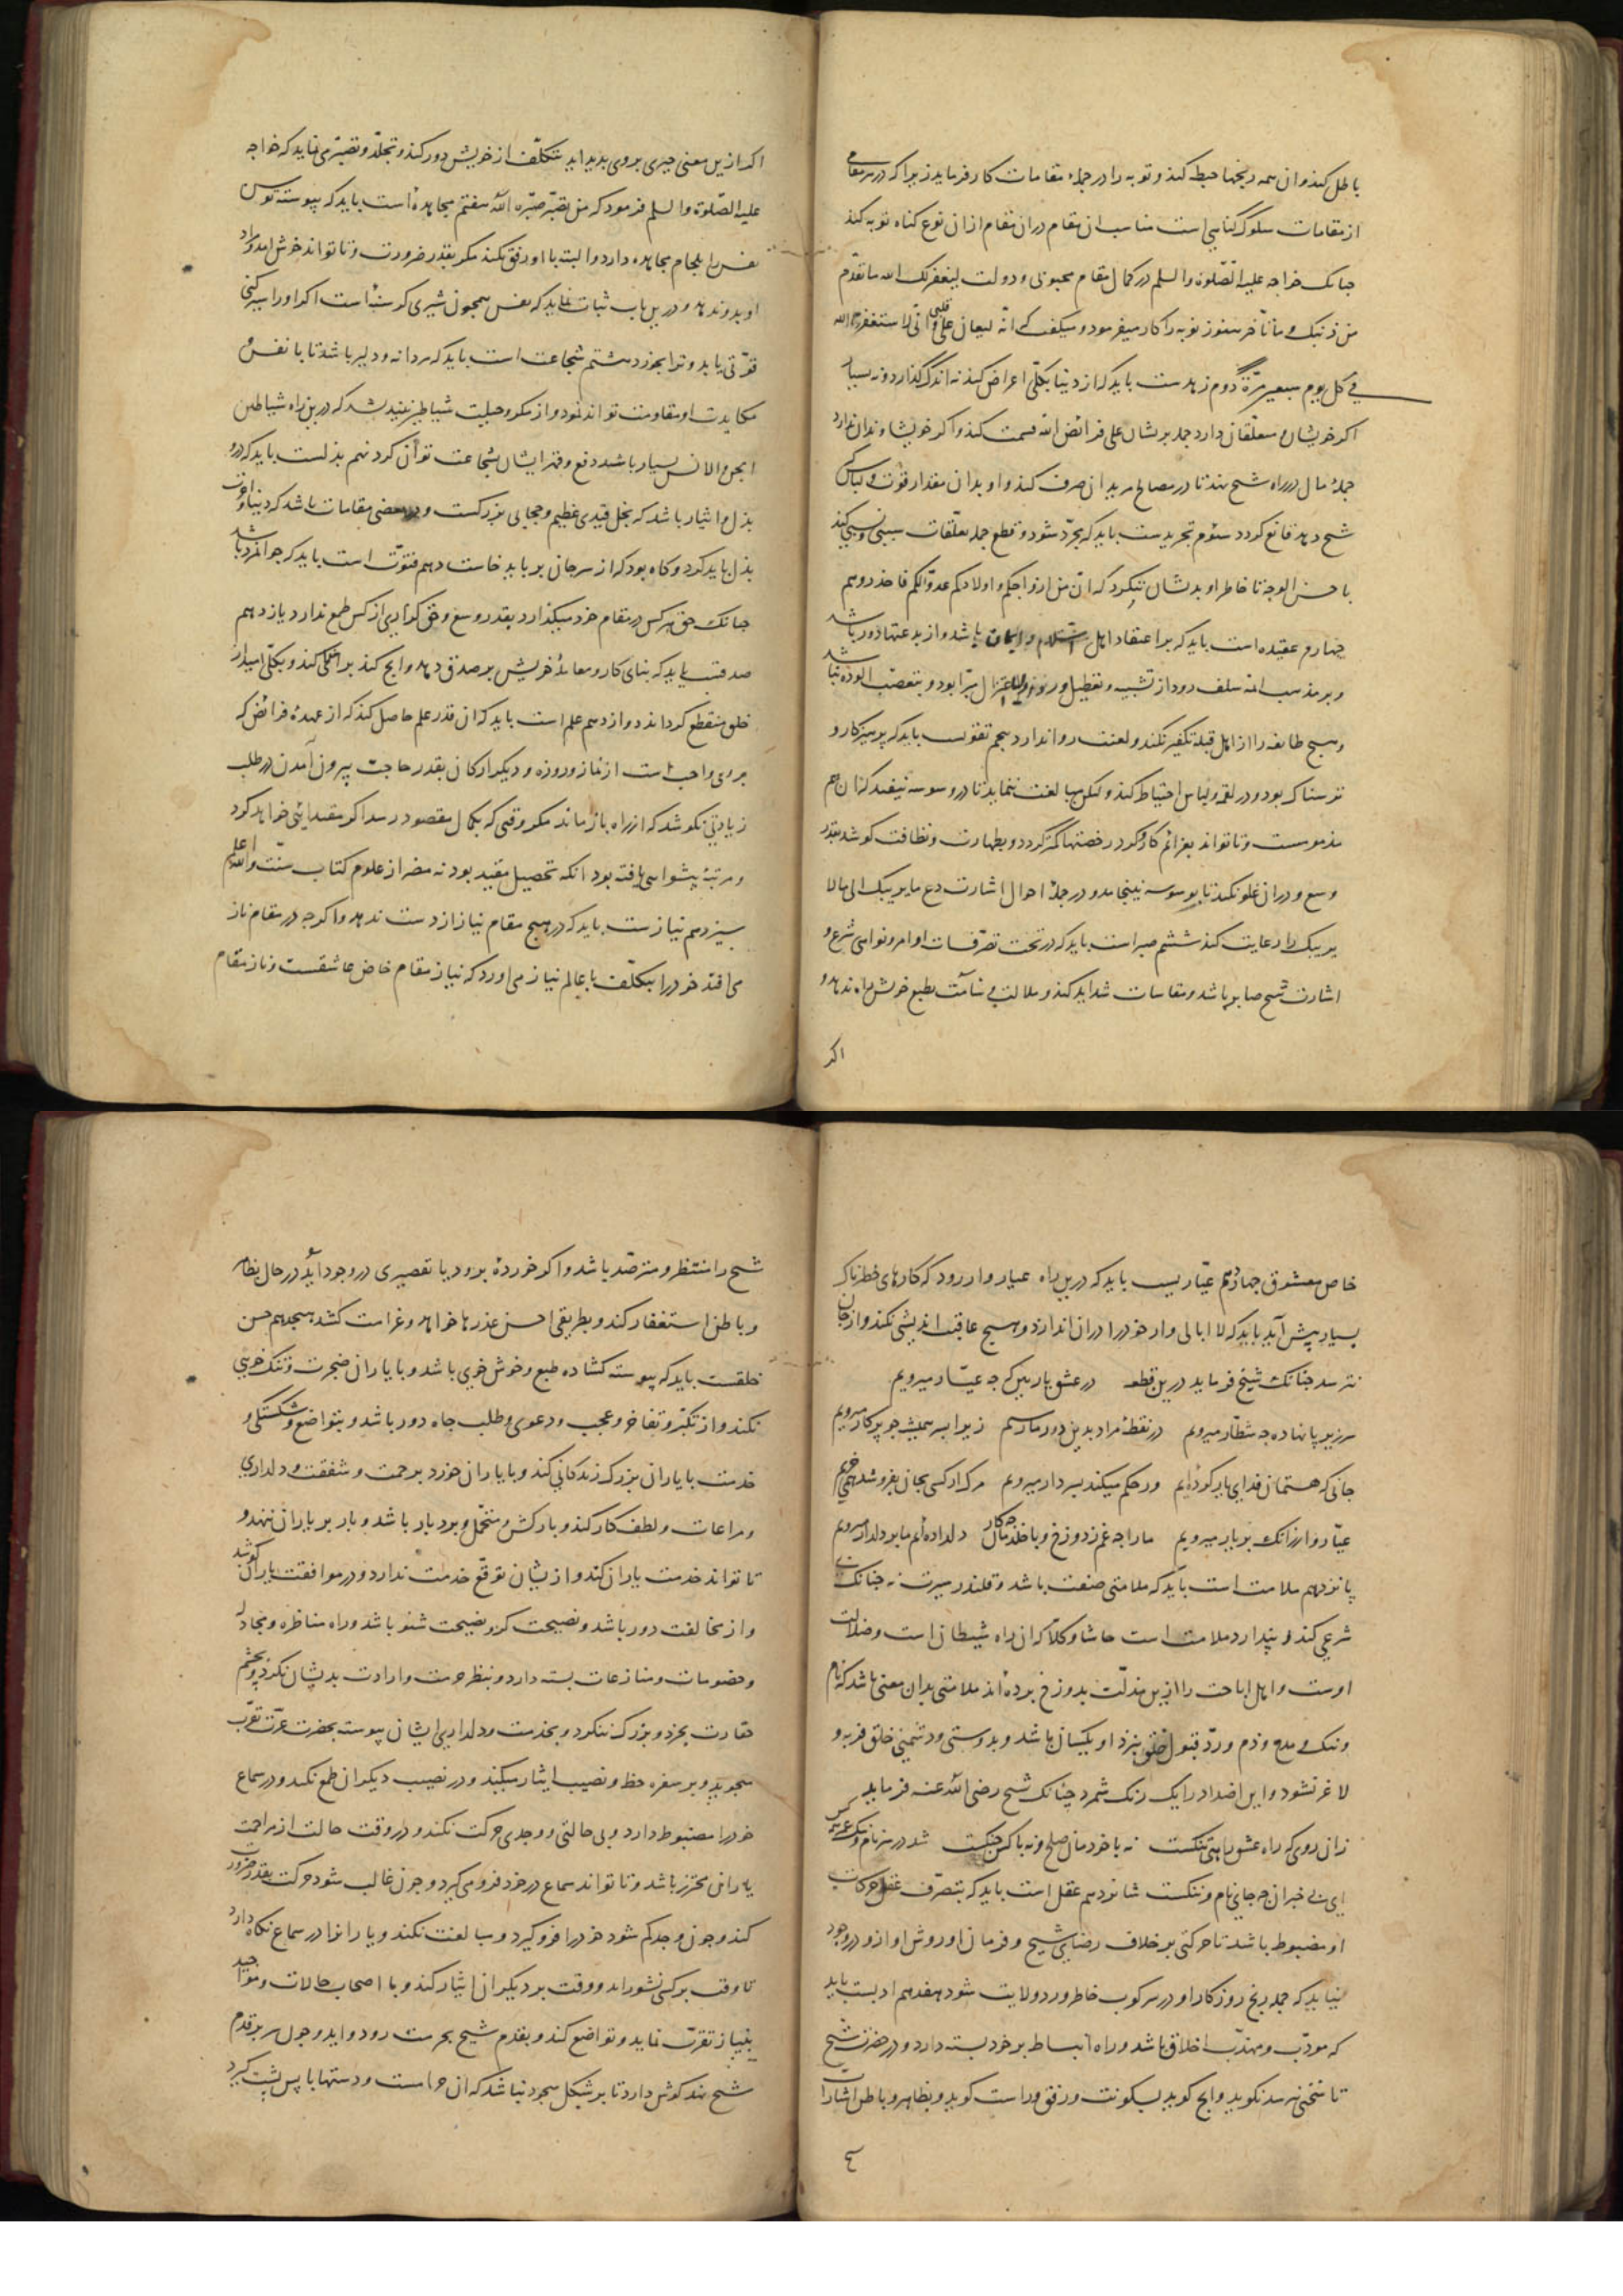 باطل کند و ان همه رنجها حبطه کند و توبه را در جملهٔ مقامات کار فرماید زیرا که در هر مقامی
از مقامات سلوک گناهی است مناسب ان مقام دران مقام ازان نوع کناه توبه کند
جنانک خواجه علیه الصّلوة والسلم در کمال مقام محبوبی و دولت لیغفر لک الله ما تقدّم
من ذنبک و ما تأخّر هنوز توبه را کار میفرمود و میکفت که انّه لیغان علی قلبی و انّی لاستغفر الله
فی کل یوم سبعین مرّة دوم زهدست باید که از دنیا بکلّی اعراض کند نه اندک گذارد و نه بسیار
اکر خویشان و متعلّقان دارد جمله بریشان علی فرائض الله قسمت کند و اکر خویشاوندان ندارد
جملهٔ مال در راه شیخ نهد تا در مصالح مریدان صرف کند و او بدان مقدار قوت و لباس که
شیخ دهد قانع کردد سئوم تجریدست باید که مجرّد شود و قطع جمله تعلّقات سببی و نسبی کند
باحسن الوجه تا خاطر او بدیشان ننکرد که انّ من ازواجکم و اولادکم عدوّا لکم فاحذروهم
چهارم عقیده است باید که بر اعتقاد اهل اسلام و ایمان باشد و از بدعتها دور باشد
و بر مذهب ائمه سلف رود از تشبیه و تعطیل و رفض و اعتزال مبّرا بود و بتعصّب الوده نباشد
و هیچ طایفه را از اهل قبله تکفیر نکند و لعنت روا ندارد پنجم تقویست باید که پرهیزکار و
ترسناک بود و در لقمه و لباس احتیاط کند ولکن مبالغت ننماید تا در وسوسه نیفتد که ان هم
مذمومست و تا تواند بعزائم کار کند کرد رخصتها کمتر کردد و بطهارت و نظافت کوشد بقدر
وسع و دران غلو نکند تا بوسوسه نینجامد و در جملهٔ احوال اشارت دع ما یریبک الی ما لا
یریبک را رعایت کند ششم صبر است باید که در تحت تصرّفات اوامر و نواهی شرع و
اشارت شیخ صابر باشد و مقاسات شداید کند و ملالت و سآمت بطبع خویش راه ندهد و
اکر
اکر ازین معنی چیزی بر وی بدید اید بتکلّف از خویش دور کند و تجلّد و تصبّر می نماید که خواجه
علیه الصّلوة والسلم فرمود که من تصبّر صبّره الله هفتم مجاهدهٔ است باید که پیوسته توسن
نفس را بلجام مجاهده دارد و البته با او رفق نکند مکر بقدر ضرورت و تا تواند خوش امد و مراد
او بدو ندهد و درین باب ثبات نماید که نفس همچون شیری کرسنهٔ است اکر او را سیر کنی
قوّتی یابد و ترا بخورد هشتم شجاعت است باید که مردانه و دلیر باشد تا با نفس و
مکایدت او مقاومت تواند نمود و از مکر و حیلت شیاطین نیندیشد که درین راه شیاطین
الجن والانس بسیار باشد دفع و قهر ایشان بشجاعت توان کرد نهم بذلست باید که درو
بذل و ایثار باشد که بخل قیدی عظیم و حجابی بزرکست و در بعضی مقامات باشد که دنیا و اخرت
بذل باید کرد و کاه بود که از سر جان بر باید خاست دهم فتوّت است باید که جوانمرد باشد
جنانک حق هر کس در مقام خود میکذارد بقدر وسع و حق کزاری از کس طمع ندارد یازدهم
صدقست باید که بنای کار و معاملهٔ خویش بر صدق دهد و انج کند برای حق کند و بکلّی امید از
خلق منقطع کرداند دوازدهم علم است باید که ان قدر علم حاصل کند که از عهدهٔ فرائض که
بروی واجب است از نماز و روزه و دیکر ارکان بقدر حاجت بیرون آمدن در طلب
زیادتی نکوشد که از راه باز ماند مکر وقتی که بکمال مقصود رسد اکر مقتدایئی خواهد کرد
و مرتبهٔ پیشوایی یافته بود انکه تحصیل مفید بود نه مضر از علوم کتاب و سنّت والله اعلم
سیزدهم نیازست باید که در هیچ مقام نیاز از دست ندهد و اکرچه در مقام ناز
می افتد خود را بتکلّف با عالم نیاز می اورد که نیاز مقام خاص عاشقست و ناز مقام
خاص معشوق چهاردهم عیّاریست باید که درین راه عیار وار رود که کارهای خطرناک
بسیار پیش آید باید که لا ابالی وار خود را دران اندازد و هیچ عاقبت اندیشی نکند و از جان
نترسد جنانک شیخ فرماید درین قطعه در عشق یار بین که چه عیّار میرویم
سر زیر پا نهاده چه شطّار میرویم در نقطهٔ مراد بدین دور ما رسیم زیرا بسر همیشه چو پرکار میرویم
جانی که هستمان فدای یار کرده ایم ور حکم میکند بسر دار میرویم مرک ار کسی بجان بفروشد همی خریم
عیّار وار زانک بر یار میرویم ما را چه غم ز دوزخ و با خلد مان چه کار دلداده ایم ما بر دلدار میرویم
پانزدهم ملامت است باید که ملامتی صفت باشد و قلندر سیرت نه جنانک بی
شرعی کند و پندارد ملامت است حاشا و کلّا که ان راه شیطان است و ضلالت
اوست و اهل اباحت را ازین مذلّت بدوزخ برده اند ملامتی بدان معنی باشد که نام
و ننک و مدح و ذم و ردّ و قبول خلق بنزد او یکسان باشد و بدوستی و دشمنی خلق فربه و
لاغر نشود و این اضداد را یک رنک شمرد چنانک شیخ رضی الله عنه فرماید
زان روی که راه عشق راهی تنکست نه با خودمان صلح و نه با کس جنکست شد در سر نام و ننک عمر همه کس
ای بی خبران چه جای نام و ننکست شانزدهم عقل است باید که بتصرّف عقل حرکات
او مضبوط باشد تا حرکتی بر خلاف رضای شیخ و فرمان او و روش او ازو در وجود
نیاید که جمله رنج روزکار او در سر کوب خاطر و رد ولایت شود هفدهم ادبست باید
که مودّب و مهذّب اخلاق باشد و راه انبساط بر خود بسته دارد و در حضرت شیخ
تا سخنی نپرسد نکوید و انچ کوید بسکونت و رفق و راست کوید و بظاهر و باطن اشارات
شیخ را منتظر و مترصّد باشد و اکر خوردهٔ برود یا تقصیری در وجود آید در حال بظاهر
و باطن استغفار کند و بطریقی احسن عذرها خواهد و غرامت کشد هیجدهم حسن
خلقست باید که پیوسته کشاده طبع و خوش خوی باشد و با یاران ضجرت و تنک خویی
نکند و از تکبّر و تفاخر و عجب و دعوی و طلب جاه دور باشد و بتواضع و شکستکی و
خدمت با یاران بزرک زندکانی کند و با یاران خورد برحمت و شفقت و دلداری
و مراعات و لطف کار کند و بارکش و متحمّل و بردبار باشد و بار بر یاران ننهد و
تا تواند خدمت یاران کند و از یشان توقّع خدمت ندارد و در موافقت یاران کوشد
و از مخالفت دور باشد و نصیحت کر و نصیحت شنو باشد و راه مناظره و مجادله
و خصومات و منازعات بسته دارد و بنظر حرمت و ارادت بدیشان نکرد و بچشم
حقارت بخرد و بزرک ننکرد و بخدمت و دلداری ایشان پیوسته بحضرت عزّت تقرّب
می جوید و بر سفره حظ و نصیب ایثار میکند و در نصیب دیکران طمع نکند و در سماع
خود را مضبوط دارد و بی حالتی و وجدی حرکت نکند و در وقت حالت از مزاحمت
یاران محترز باشد و تا تواند سماع در خود فرو می کیرد و چون غالب شود حرکت بقدر ضرورت
کند و چون وجد کم شود خود را فرو کیرد و مبالغت نکند و یارانرا در سماع نکاه دارد
تا وقت بر کسی نشوراند و وقت بر دیکران ایثار کند و با اصحاب حالات و مواجید
بنیاز تقرّب نماید و تواضع کند و بقدم شیخ بحرمت رود و اید و چون سر بر قدم
شیخ نهد کوش دارد تا بر شکل سجود نباشد که ان حرامست و دستها با پس پشت کیرد